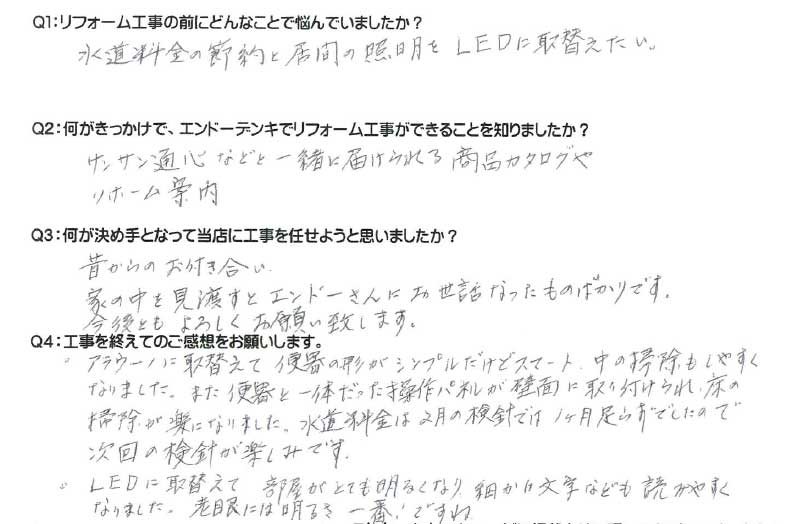 Q1:リフォーム工事の前にどんなことで悩んでいましたか？
水道料金の節約と居間の照明を LEDに取替えたい。
Q2:何がきっかけで、エンドーデンキでリフォーム工事ができることを知りましたか？
ケンサン通心などと一緒に届けられる商品カタログや
リホーム案内
Q3:何が決め手となって当店に工事を任せようと思いましたか？
昔からのお付き合い。
家の中を見渡すとエンドーさんにお世話なったものばかりです。
今後ともよろしくお願い致します。
Q4:工事を終えてのご感想をお願いします。
。アラウーノに取替えて便器の形がシンプルだけどスマート、中の掃除もしやすく
なりました。また便器と一体だった操作パネルが壁面に取り付けられ、床の
掃除が楽になりました。水道料金は2月の検針では1ヶ月足らずでしたので
次回の検針が楽しみです。
。LEDに取替えて 部屋がとても明るくなり、細かい文字なども読みやすく
なりました。老眼には明るさ一番！ですね